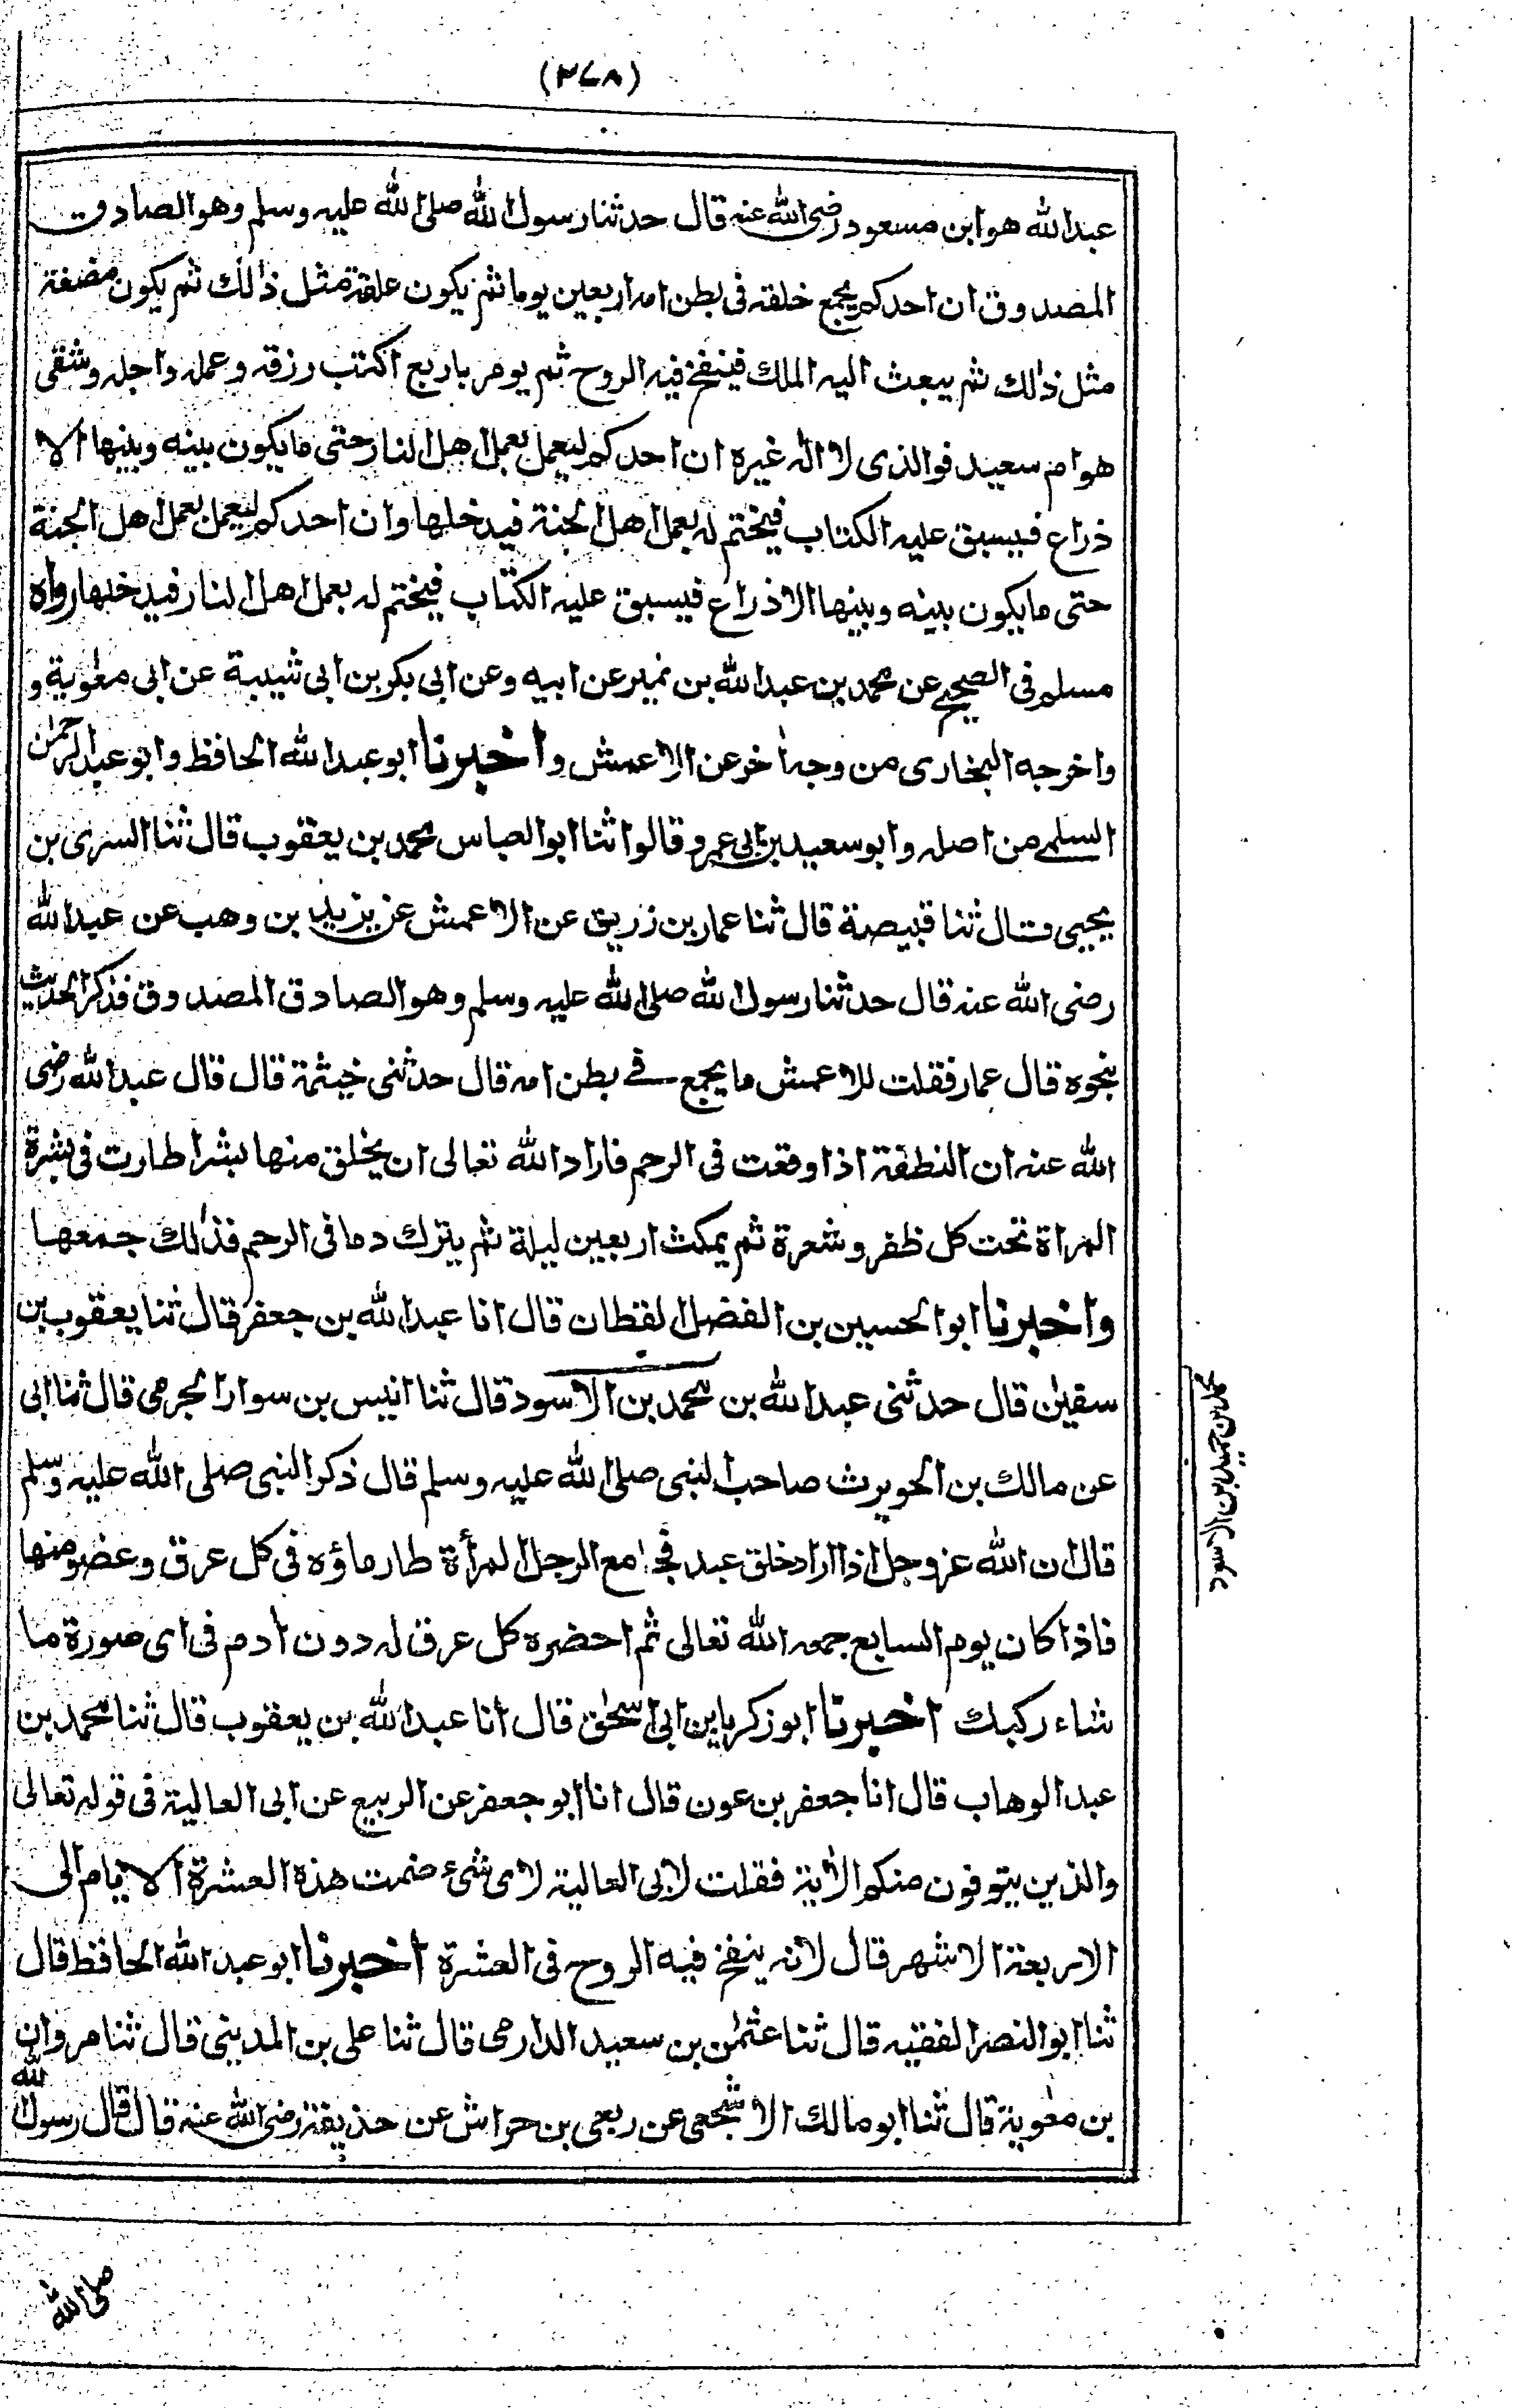 (۲۷۸)
عبدالله هو ابن مسعود رضی الله عنه قال حدثنا رسول الله صلی الله علیه وسلم وهو الصادق
المصدوق ان احدكم يجمع خلقه فی بطن امه اربعین یوما ثم یکون علقة مثل ذٰلك ثم یکون مضغة
مثل ذٰلك ثم یبعث الیه الملك فینفخ فیه الروح ثم یومر باربع اکتب رزقه وعمله واجله وشقی
هو ام سعید فوالذی لا اله غیره ان احدکم لیعمل بعمل اهل النار حتی مایکون بینه وبینها الا
ذراع فیسبق علیه الکتاب فیختم له بعمل اهل الجنة فیدخلها وان احدکم لیعمل بعمل اهل الجنة
حتی مایکون بینه وبینها الا ذراع فیسبق علیه الکتاب فیختم له بعمل اهل النار فیدخلها رواه
مسلم فی الصحیح عن محمد بن عبدالله بن نمیر عن ابیه وعن ابی بکر بن ابی شیبة عن ابی معٰویة و
واخرجه البخاری من وجه اٰخر عن الاعمش واخبرنا ابو عبدالله الحافظ وابو عبدالرحمٰن
السلمی من اصله وابو سعید بن ابی عمرو قالوا ثنا ابو العباس محمد بن یعقوب قال ثنا السری بن
یحیی قال ثنا قبیصة قال ثنا عمار بن زریق عن الاعمش عن یزید بن وهب عن عبدالله
رضی الله عنه قال حدثنا رسول الله صلی الله علیه وسلم وهو الصادق المصدوق فذکر الحدیث
بنحوه قال عمار فقلت للاعمش ما یجمع فی بطن امه قال حدثنی خیثمة قال قال عبدالله رضی
الله عنه ان النطفة اذا وقعت فی الرحم فاراد الله تعالی ان یخلق منها بشرا طارت فی بشرة
المراة تحت کل ظفر وشعرة ثم یمکث اربعین لیلة ثم ینزل دما فی الرحم فذٰلك جمعها
واخبرنا ابو الحسین بن الفضل القطان قال انا عبدالله بن جعفر قال ثنا یعقوب بن
سفیٰن قال حدثنی عبدالله بن محمد بن الاسود قال ثنا انیس بن سوار الجرمی قال ثنا ابی
عن مالك بن الحویرث صاحب النبی صلی الله علیه وسلم قال ذکر النبی صلی الله علیه وسلم
قال ان الله عز وجل اذا اراد خلق عبد فجامع الرجل المرأة طار ماؤه فی کل عرق وعضو منها
فاذا کان یوم السابع جمعه الله تعالی ثم احضره کل عرق له دون اٰدم فی ای صورة ما
شاء رکبك اخبرنا ابو زکریا بن ابی اسحٰق قال انا عبدالله بن یعقوب قال ثنا محمد بن
عبدالوهاب قال انا جعفر بن عون قال انا ابو جعفر عن الربیع عن ابی العالیة فی قوله تعالی
والذین یتوفون منکم الاٰیة فقلت لابی العالیة لای شیء ضمت هذه العشرة الایام الی
الاربعة الاشهر قال لانه ینفخ فیه الروح فی العشرة اخبرنا ابو عبدالله الحافظ قال
ثنا ابو النضر الفقیه قال ثنا عثمٰن بن سعید الدارمی قال ثنا علی بن المدینی قال ثنا مروان
بن معٰویة قال ثنا ابو مالك الاشجعی عن ربعی بن حراش عن حذیفة رضی الله عنه قال قال رسول الله
محمد بن حمید بن الاسود
صلی الله